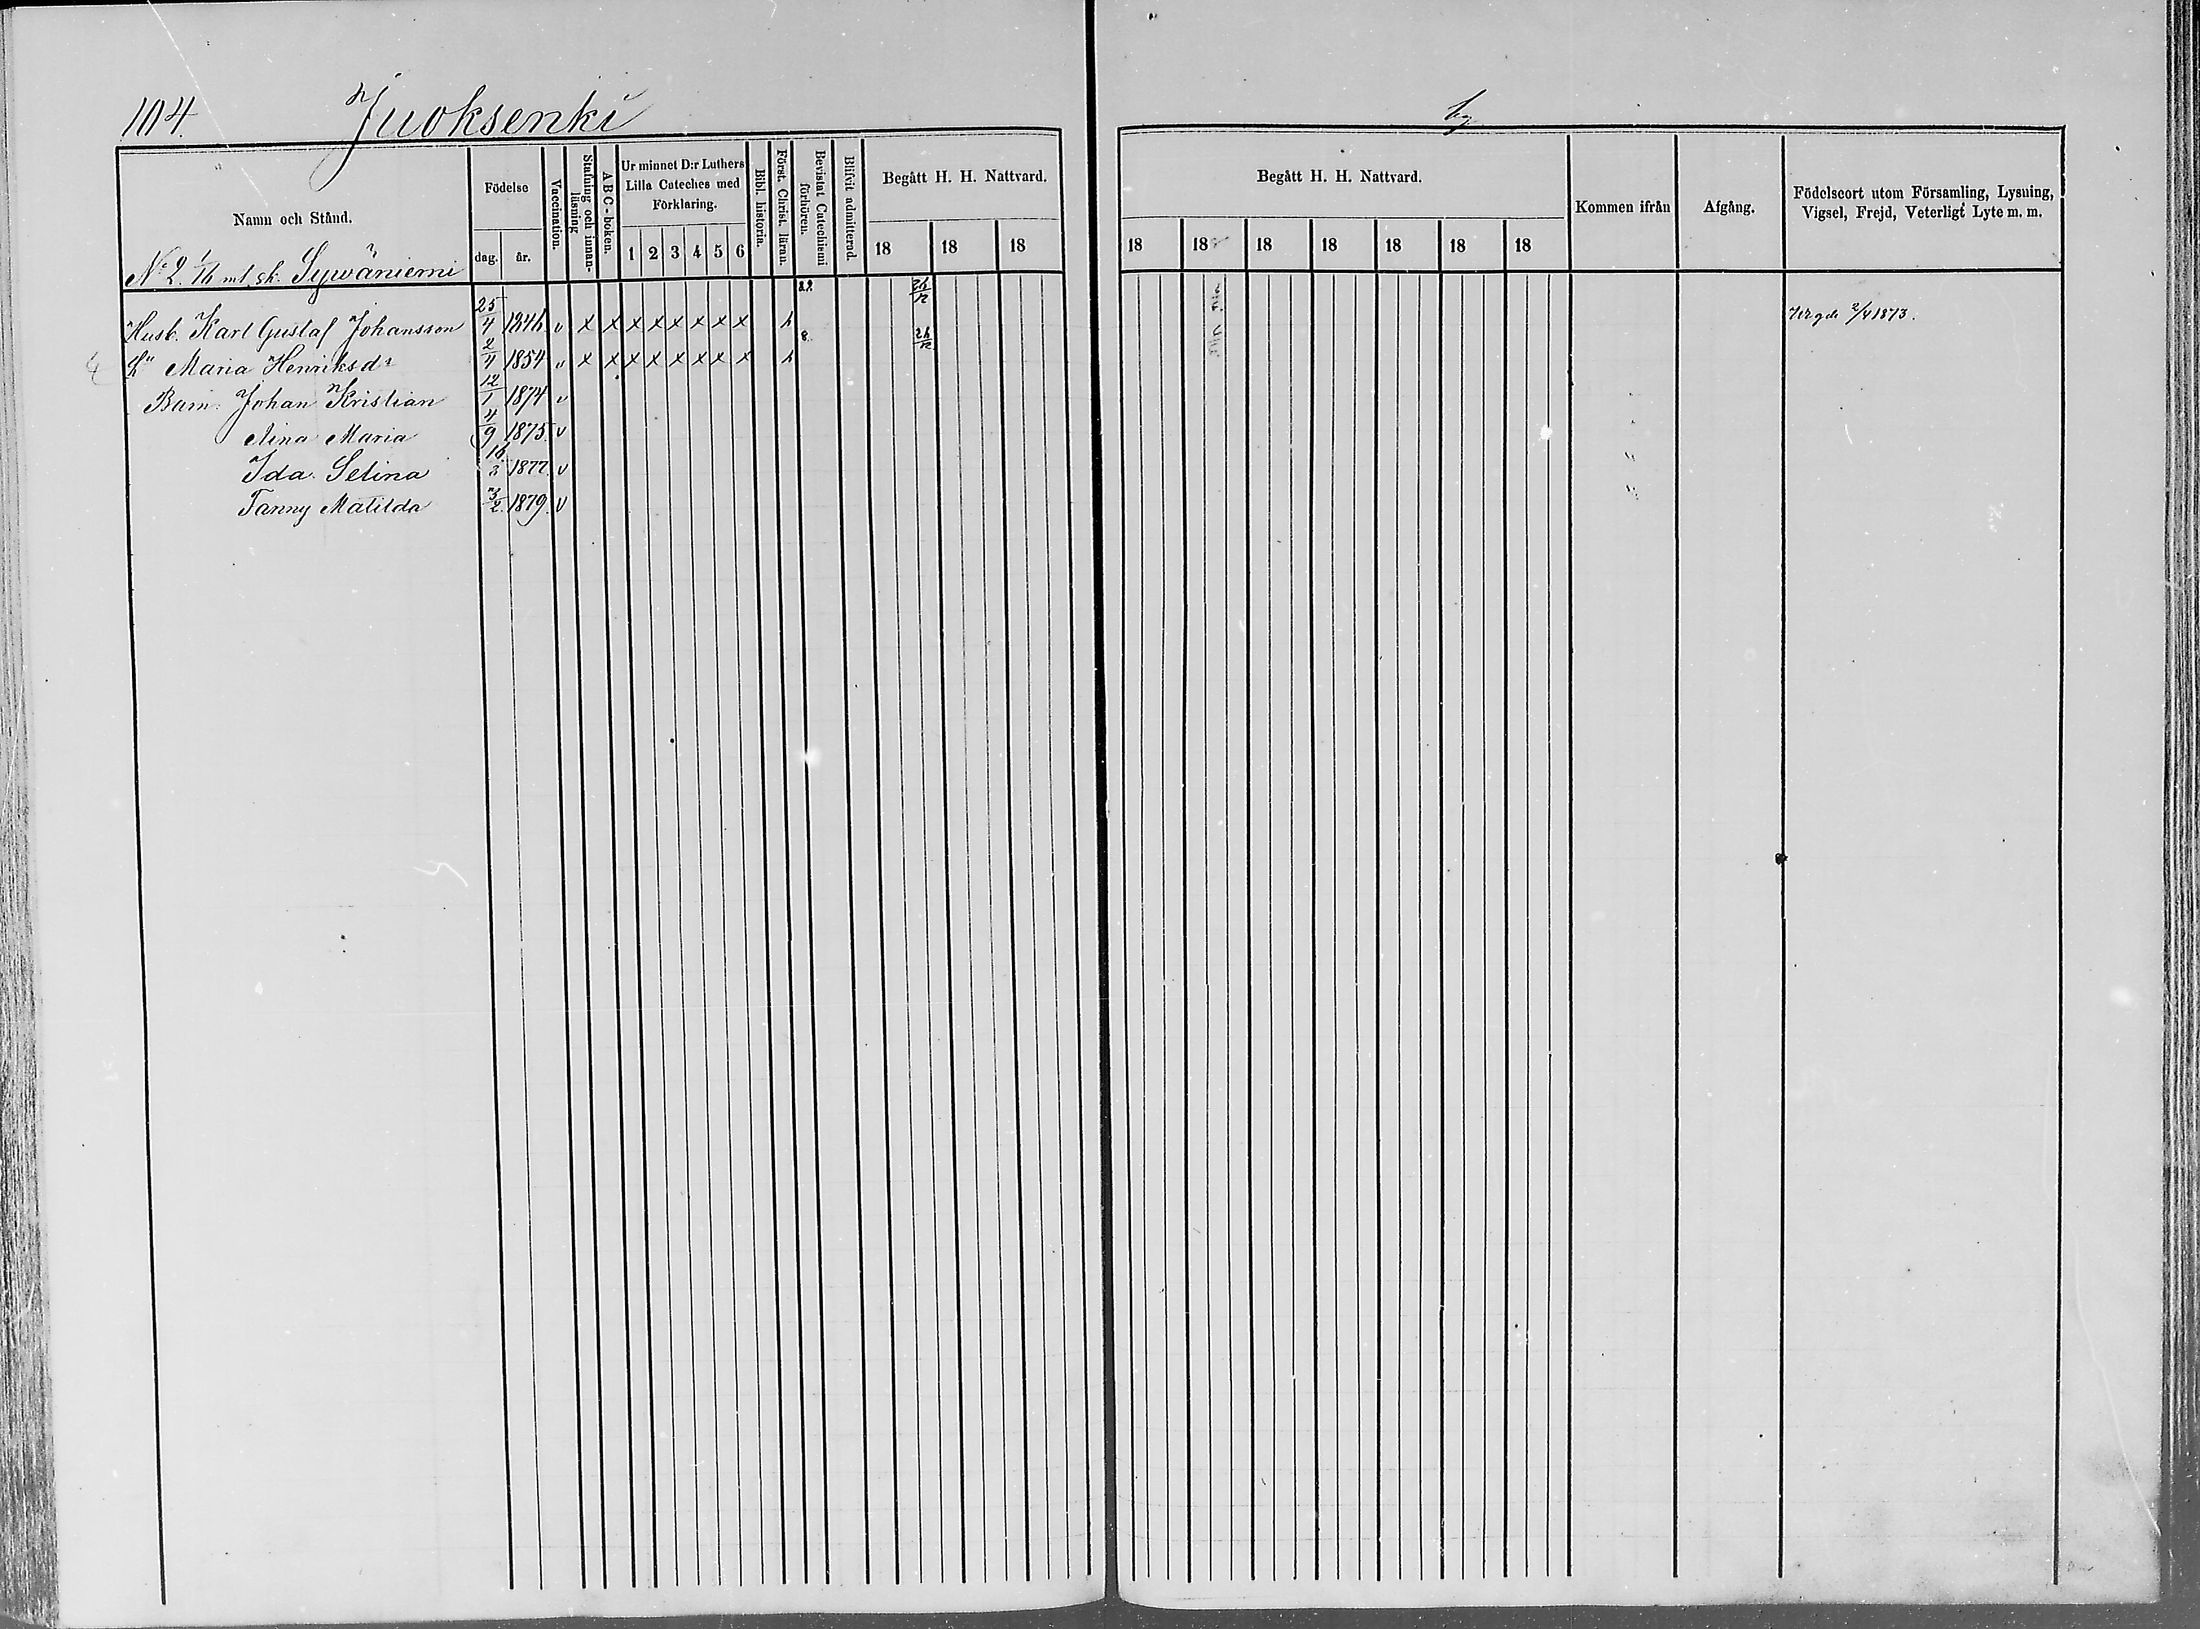 104. Juoksenki by
Namn och Stånd.
Födelse
dag. år.
Vaccination.
Stafning och innan-läsning
A B C - boken.
Ur minnet D:r Luthers Lilla Cateches med Förklaring.
1 2 3 4 5 6
Bibl. historia.
Först. Christ. läran.
Bevistat Catechismi förhören.
Blifvit admitterad.
Begått H. H. Nattvard.
18 18 18
Begått H. H. Nattvard.
18 18 18 18 18 18 18
Kommen ifrån
Afgång.
Födelseort utom Församling, Lysning,
Vigsel, Frejd, Veterligt Lyte m. m.
No 2. 1/16 mtl sk. Sywäniemi
Husb. Karl Gustaf Johansson 25/4 1846 v x x x x x x x x h Vigde 2/4 1873.
H:u Maria Henriksdr 2/4 1854 v x x x x x x x x h
Barn: Johan Kristian 12/1 1874 v
Aina Maria 4/9 1875. v
Ida Selina 16/3 1877. v
Fanny Matilda 3/2 1879. v